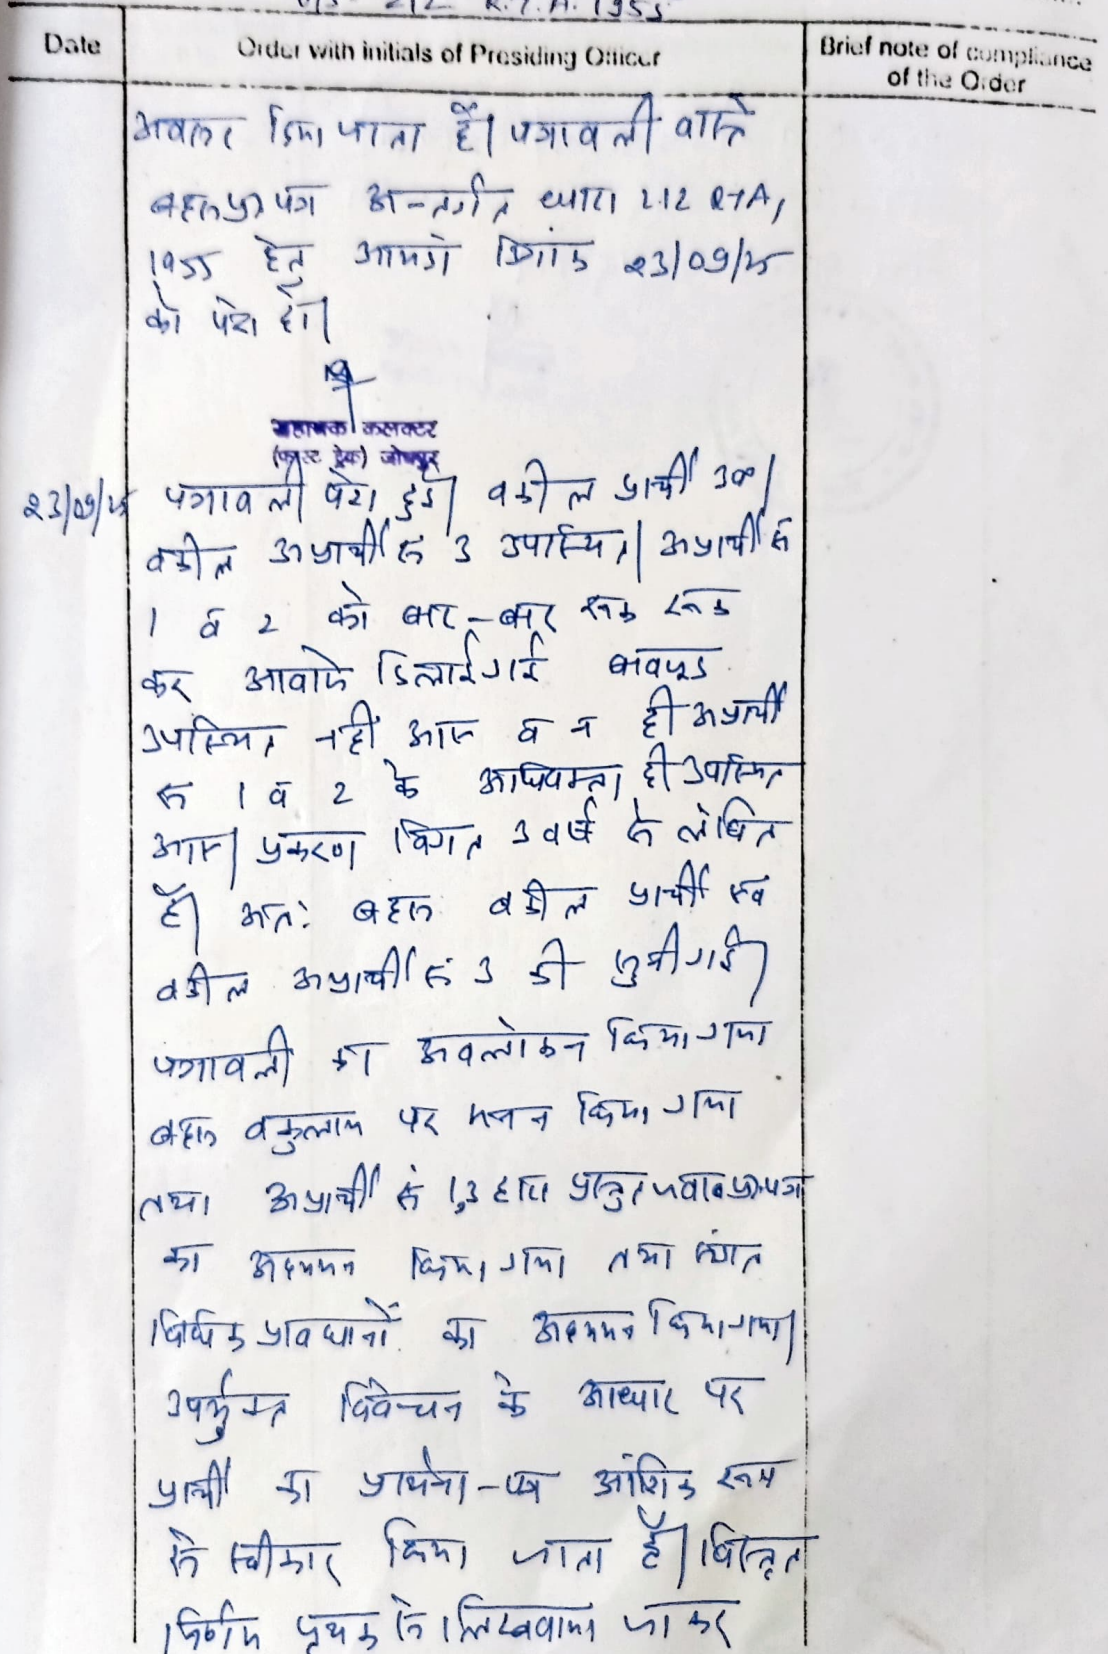 U/S - 212 R.T.A. 1955
Date
Order with initials of Presiding Officer
Brief note of compliance
of the Order
अवसर दिया जाता है। पत्रावली वास्ते
बहस प्रा.पत्र अन्तर्गत धारा 212 RTA,
1955 हेतु आगामी दिनांक 23/09/25
को पेश हो।
सहायक कलक्टर
(फास्ट ट्रेक) जोधपुर
23/09/25 पत्रावली पेश हुई। वकील प्रार्थी उप॰।
वकील अप्रार्थी सं 3 उपस्थित। अप्रार्थी सं
1 व 2 को बार-बार रूक रूक
कर आवाजें दिलाई गई बावजूद
उपस्थित नहीं आए व न ही अप्रार्थी
सं 1 व 2 के अधिवक्ता ही उपस्थित
आए। प्रकरण विगत 3 वर्ष से लंबित
है। अतः बहस वकील प्रार्थी एवं
वकील अप्रार्थी सं 3 की सुनी गई।
पत्रावली का अवलोकन किया गया
बहस वकुलाय पर मनन किया गया
तथा अप्रार्थी सं 1,3 द्वारा प्रस्तुत जवाब प्रा.पत्र
का अध्ययन किया गया तथा
विधिक प्रावधानों का अध्ययन किया गया।
उपर्युक्त विवेचन के आधार पर
प्रार्थी का प्रार्थना-पत्र आंशिक रूप
से स्वीकार किया जाता है। विस्तृत
निर्णय पृथक से लिखवाया जाकर